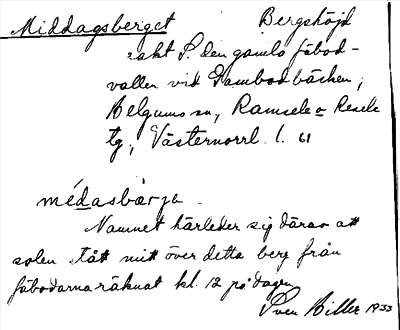 Middagsberget Bergshöjd
rakt S. den gamla fäbod-
vallen vid Gambodbäcken,
Helgums sn, Ramsele o Resele
tg, Västernorrl. l. 61
médasbärja
Namnet härleder sig därav att
solen stått mitt över detta berg från
fäbodarna räknat kl. 12 på dagen
Sven Biller 1933